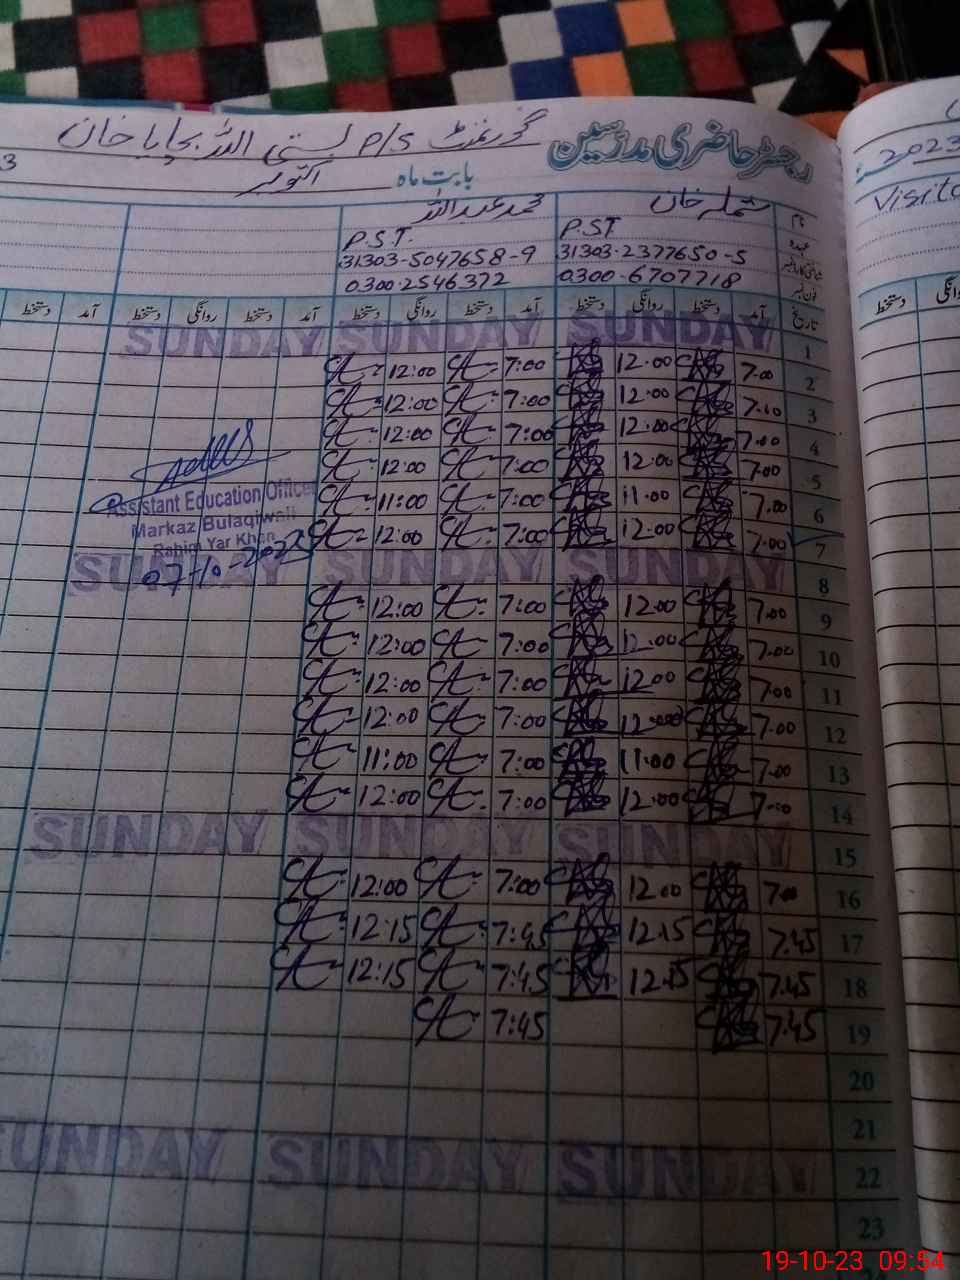 رجسٹر حاضری مدرسین گورنمنٹ P/S بستی اللہ بچایا خان
بابت ماہ اکتوبر 3
2023
Visito
نام شملہ خان محمد عبداللہ
عہدہ P.ST P.S.T.
شناختی کارڈ نمبر 31303-2377650-5 31303-5047658-9
فون نمبر 0300-6707718 0300-2546372
تاریخ آمد دستخط روانگی دستخط آمد دستخط روانگی دستخط آمد دستخط روانگی دستخط آمد دستخط
دستخط
1 SUNDAY SUNDAY SUNDAY
2 7.00 12.00 7:00 12:00
3 7.00 12.00 7:00 12:00
4 7.00 12.00 7:00 12:00
5 7.00 12.00 7:00 12:00
6 7.00 11.00 7:00 11:00
7 7.00 12.00 7:00 12:00
Assistant Education Officer
Markaz Bulaqiwali
Rahim Yar Khan
07-10-2023
8 SUNDAY SUNDAY SUNDAY
9 7.00 12.00 7:00 12:00
10 7.00 12.00 7:00 12:00
11 7.00 12.00 7:00 12:00
12 7.00 12.00 7:00 12:00
13 7.00 11.00 7:00 11:00
14 7.00 12.00 7:00 12:00
15 SUNDAY SUNDAY SUNDAY
16 7.00 12.00 7:00 12:00
17 7.45 12.15 7:45 12:15
18 7.45 12.15 7:45 12:15
19 7.45 7:45
20
21
22 SUNDAY SUNDAY SUNDAY
23
19-10-23 09:54